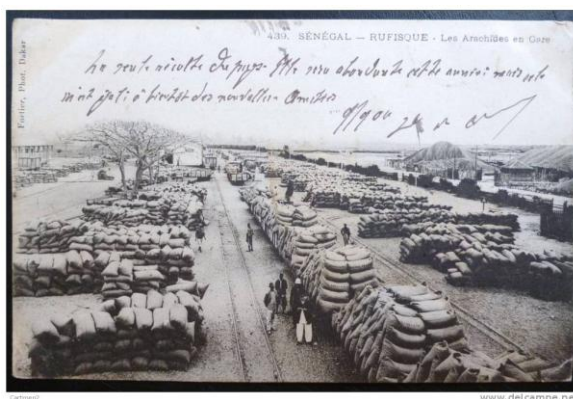 439. SÉNÉGAL — RUFISQUE - Les Arachides en Gare
Fortier, Phot. Dakar
La seule récolte du pays. Elle sera abondante cette année mais cela
à bientôt des nouvelles
www.delcampe.net